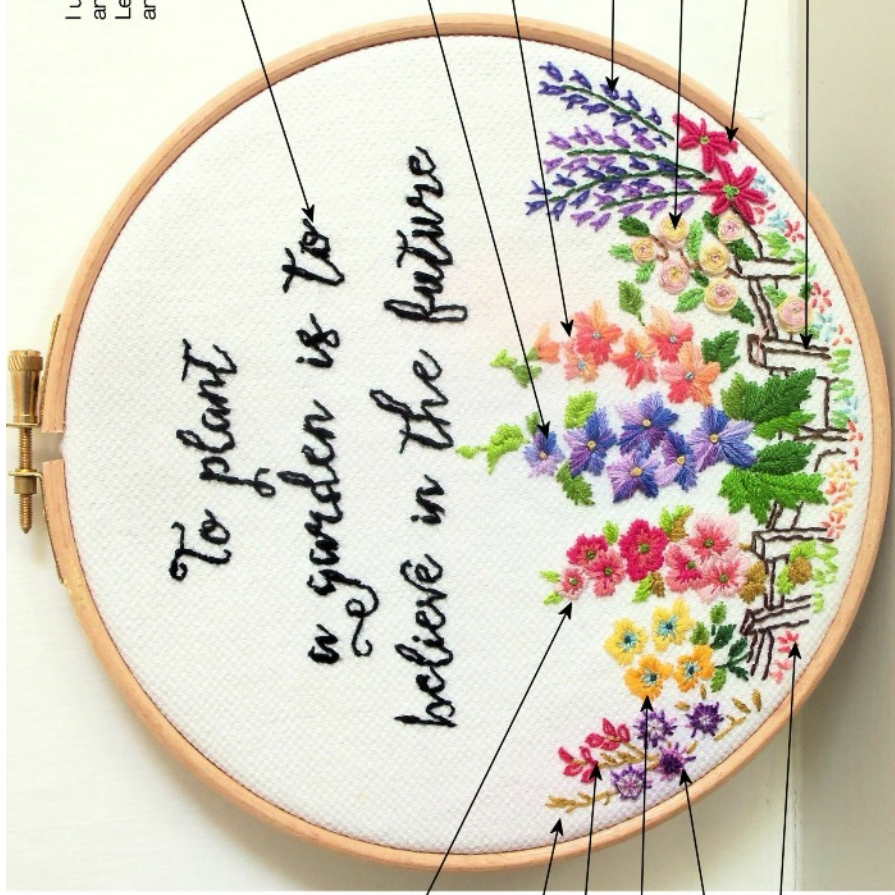 To plant
a garden is to
believe in the future
I u
an
Le
an